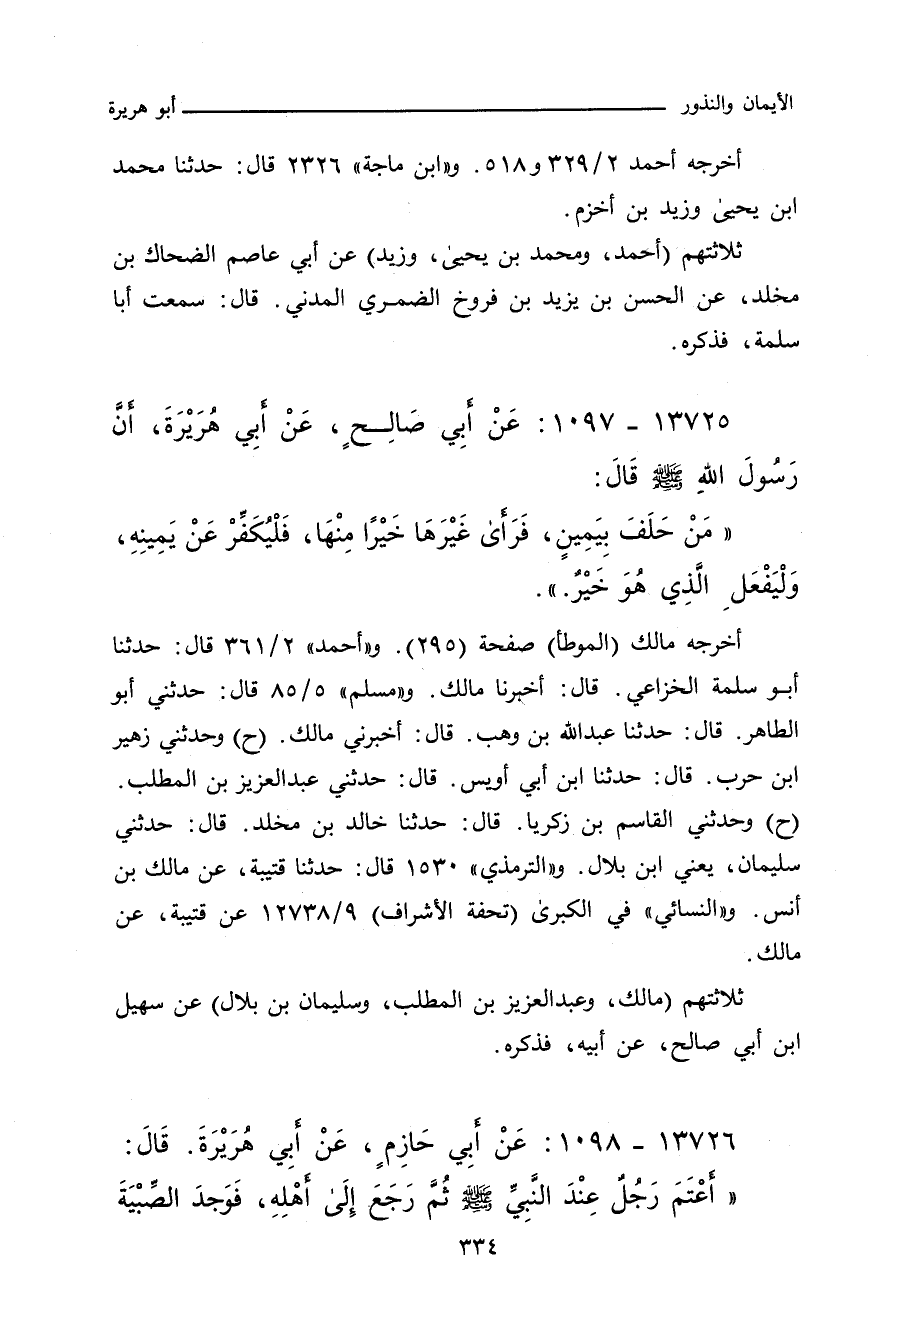 الأيمان والنذور ــــــــــــــــــــ أبو هريرة
أخرجه أحمد ٣٢٩/٢ و٥١٨. و«ابن ماجة» ٢٣٢٦ قال: حدثنا محمد
ابن يحيىٰ وزيد بن أخزم.
ثلاثتهم (أحمد، ومحمد بن يحيىٰ، وزيد) عن أبي عاصم الضحاك بن
مخلد، عن الحسن بن يزيد بن فروخ الضمري المدني. قال: سمعت أبا
سلمة، فذكره.
١٣٧٢٥ - ١٠٩٧: عَنْ أَبِي صَالِحٍ، عَنْ أَبِي هُرَيْرَةَ، أَنَّ
رَسُولَ اللهِ ﷺ قَالَ:
« مَنْ حَلَفَ بِيَمِينٍ، فَرَأَىٰ غَيْرَهَا خَيْرًا مِنْهَا، فَلْيُكَفِّرْ عَنْ يَمِينِهِ،
وَلْيَفْعَلِ الَّذِي هُوَ خَيْرٌ.».
أخرجه مالك (الموطأ) صفحة (٢٩٥). و«أحمد» ٣٦١/٢ قال: حدثنا
أبو سلمة الخزاعي. قال: أخبرنا مالك. و«مسلم» ٨٥/٥ قال: حدثني أبو
الطاهر. قال: حدثنا عبدالله بن وهب. قال: أخبرني مالك. (ح) وحدثني زهير
ابن حرب. قال: حدثنا ابن أبي أويس. قال: حدثني عبدالعزيز بن المطلب.
(ح) وحدثني القاسم بن زكريا. قال: حدثنا خالد بن مخلد. قال: حدثني
سليمان، يعني ابن بلال. و«الترمذي» ١٥٣٠ قال: حدثنا قتيبة، عن مالك بن
أنس. و«النسائي» في الكبرىٰ (تحفة الأشراف) ١٢٧٣٨/٩ عن قتيبة، عن
مالك.
ثلاثتهم (مالك، وعبدالعزيز بن المطلب، وسليمان بن بلال) عن سهيل
ابن أبي صالح، عن أبيه، فذكره.
١٣٧٢٦ - ١٠٩٨: عَنْ أَبِي حَازِمٍ، عَنْ أَبِي هُرَيْرَةَ. قَالَ:
« أَعْتَمَ رَجُلٌ عِنْدَ النَّبِيِّ ﷺ ثُمَّ رَجَعَ إِلَىٰ أَهْلِهِ، فَوَجَدَ الصِّبْيَةَ
٣٣٤